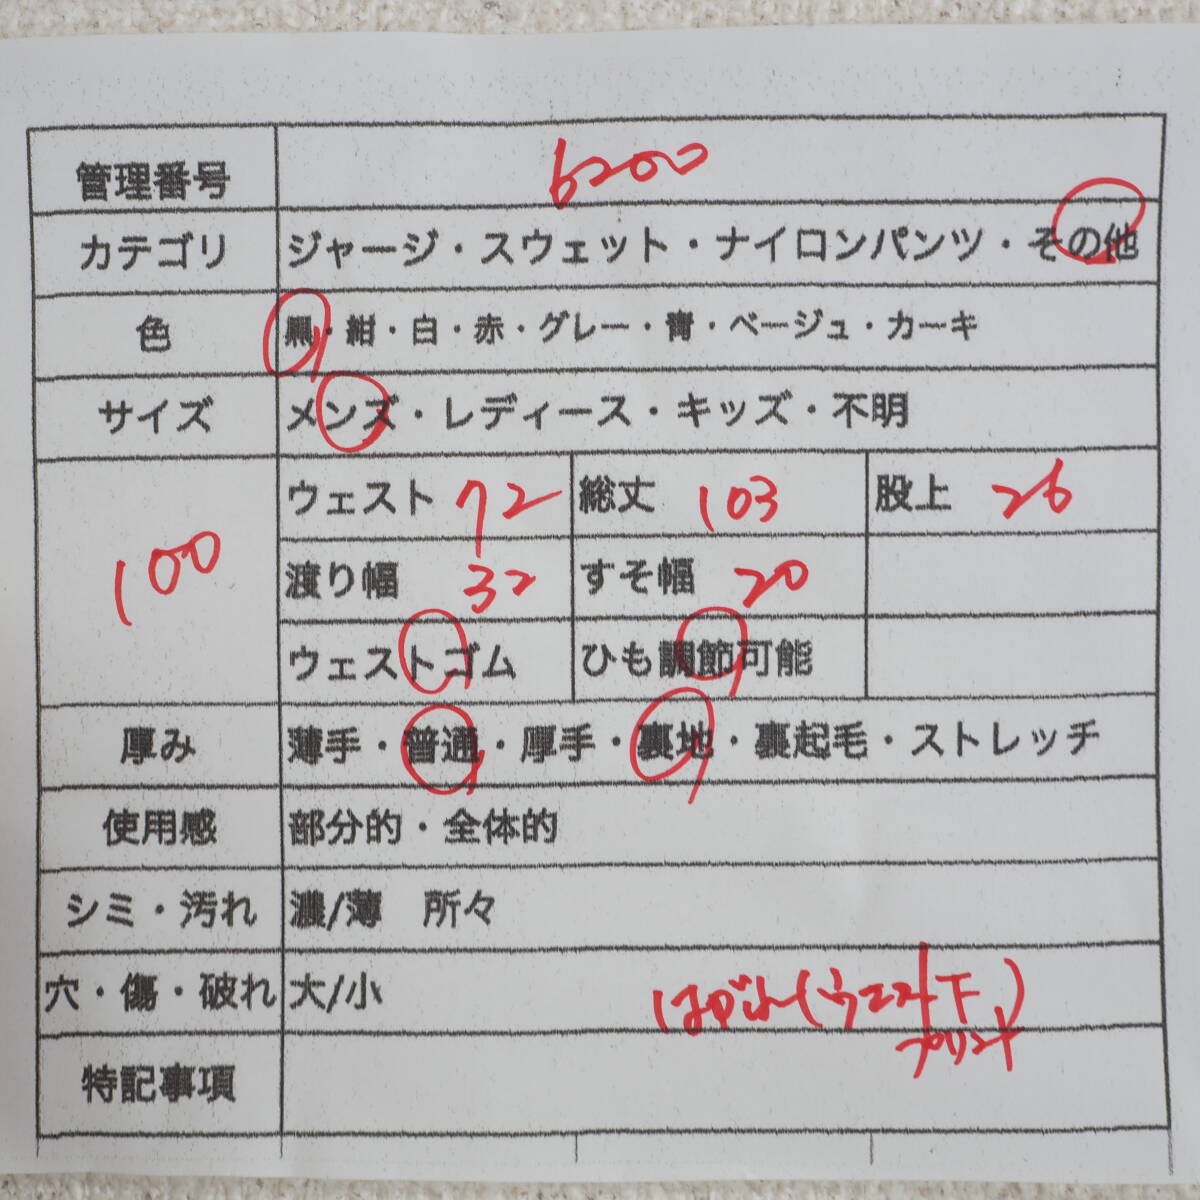 管理番号 6200
カテゴリ ジャージ・スウェット・ナイロンパンツ・その他
色 黒・紺・白・赤・グレー・青・ベージュ・カーキ
サイズ メンズ・レディース・キッズ・不明
100 ウェスト 72 総丈 103 股上 26
渡り幅 32 すそ幅 20
ウェストゴム ひも調節可能
厚み 薄手・普通・厚手・裏地・裏起毛・ストレッチ
使用感 部分的・全体的
シミ・汚れ 濃/薄 所々
穴・傷・破れ 大/小 はがれ(ウエスト下)
プリント
特記事項